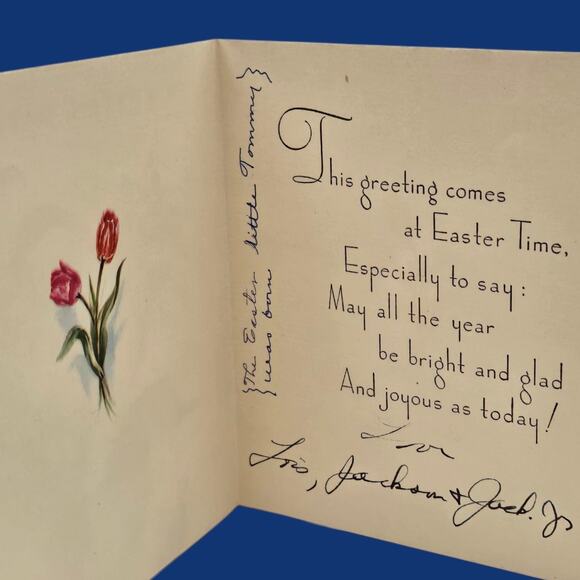 {The Easter little Tommy}
{was born
This greeting comes
at Easter Time,
Especially to say:
May all the year
be bright and glad
And joyous as today!
Love
Lois, Jackson & Jack. Jr